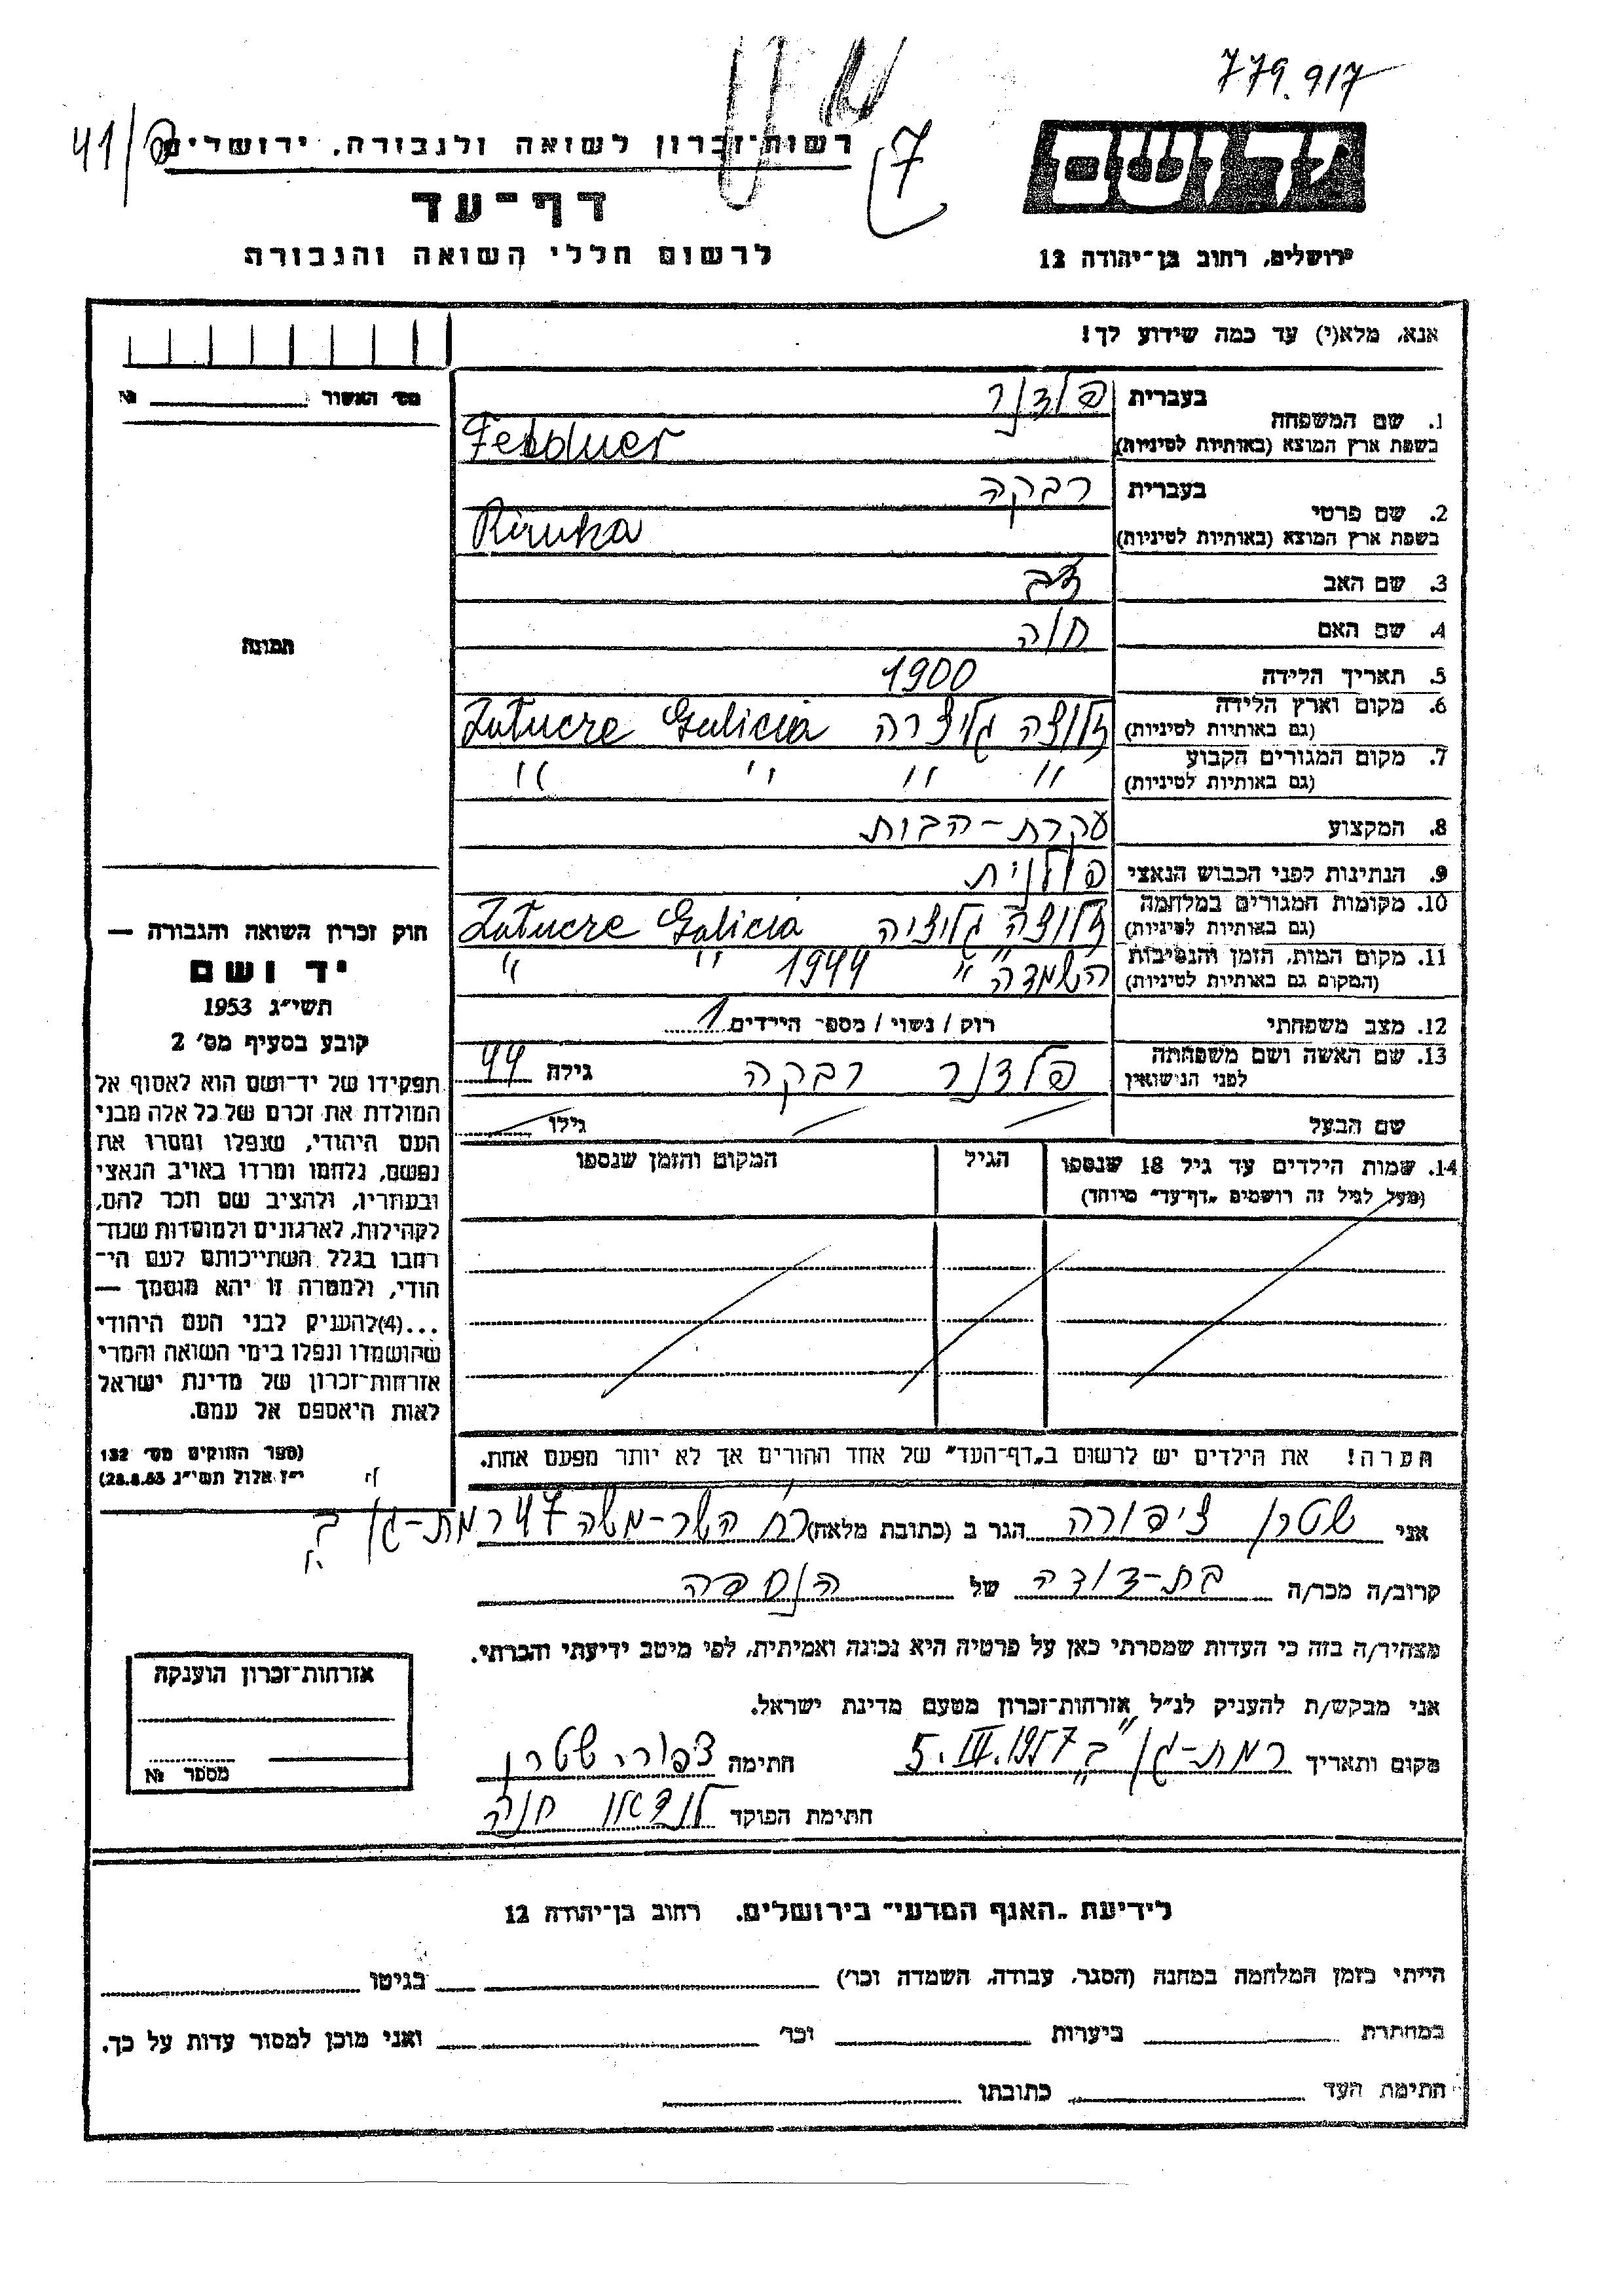 779.917
41/
רשות־זכרון לשואה ולגבורה, ירושלים
7
יד ושם
דף־עד
לרשום חללי השואה והגבורה
ירושלים, רחוב בן־יהודה 12
אנא, מלא(י) עד כמה שידוע לך!
מס' האשור № 
1. שם המשפחה
בעברית פלדנר
בשפת ארץ המוצא (באותיות לטיניות) Felduer
2. שם פרטי
בעברית רבקה
בשפת ארץ המוצא (באותיות לטיניות) Riruka
3. שם האב
4. שם האם חוה
5. תאריך הלידה 1900
6. מקום וארץ הלידה
(גם באותיות לטיניות) Galicia
7. מקום המגורים הקבוע " " " "
(גם באותיות לטיניות)
8. המקצוע עקרת-הבית
9. הנתינות לפני הכבוש הנאצי פולנית
10. מקומות המגורים במלחמה
(גם באותיות לטיניות) גליציה Galicia
11. מקום המות, הזמן והנסיבות
(המקום גם באותיות לטיניות) השמדה " 1944 " "
12. מצב משפחתי רוק / נשוי / מספר הילדים 1
13. שם האשה ושם משפחתה
לפני הנישואין פלדנר רבקה גילה 44
שם הבעל גילו
14. שמות הילדים עד גיל 18 שנספו הגיל המקום והזמן שנספו
(מעל לגיל זה רושמים „דף־עד” מיוחד)
הערה! את הילדים יש לרשום ב„דף־העד” של אחד ההורים אך לא יותר מפעם אחת.
תמונה
חוק זכרון השואה והגבורה —
יד ושם
תשי״ג 1953
קובע בסעיף מס׳ 2
תפקידו של יד־ושם הוא לאסוף אל
המולדת את זכרם של כל אלה מבני
העם היהודי, שנפלו ומסרו את
נפשם, נלחמו ומרדו באויב הנאצי
ובעוזריו, ולהציב שם וזכר להם,
לקהילות, לארגונים ולמוסדות שנח־
רבו בגלל השתייכותם לעם הי־
הודי, ולמטרה זו יהא מוסמך —
...(4)להעניק לבני העם היהודי
שהושמדו ונפלו בימי השואה והמרי
אזרחות־זכרון של מדינת ישראל
לאות היאספם אל עמם.
(ספר החוקים מס׳ 132
י״ז אלול תשי״ג 28.8.53)
אני שטרן ציפורה הגר ב (כתובת מלאה) רח' השר-משה 47 רמת-גן ב'
קרוב/ה מכר/ה בת-דודה של הנספה
מצהיר/ה בזה כי העדות שמסרתי כאן על פרטיה היא נכונה ואמיתית, לפי מיטב ידיעתי והכרתי.
אני מבקש/ת להעניק לנ״ל אזרחות־זכרון מטעם מדינת ישראל.
מקום ותאריך רמת-גן "ב" 1957 חתימה שטרן
חתימת הפוקד לנדאו חנה
אזרחות־זכרון הוענקה
מספר №
לידיעת „האגף המדעי” בירושלים, רחוב בן־יהודה 12
הייתי בזמן המלחמה במחנה (הסגר, עבודה, השמדה וכו׳) בגיטו
במחתרת ביערות וכו׳ ואני מוכן למסור עדות על כך.
חתימת העד כתובתו